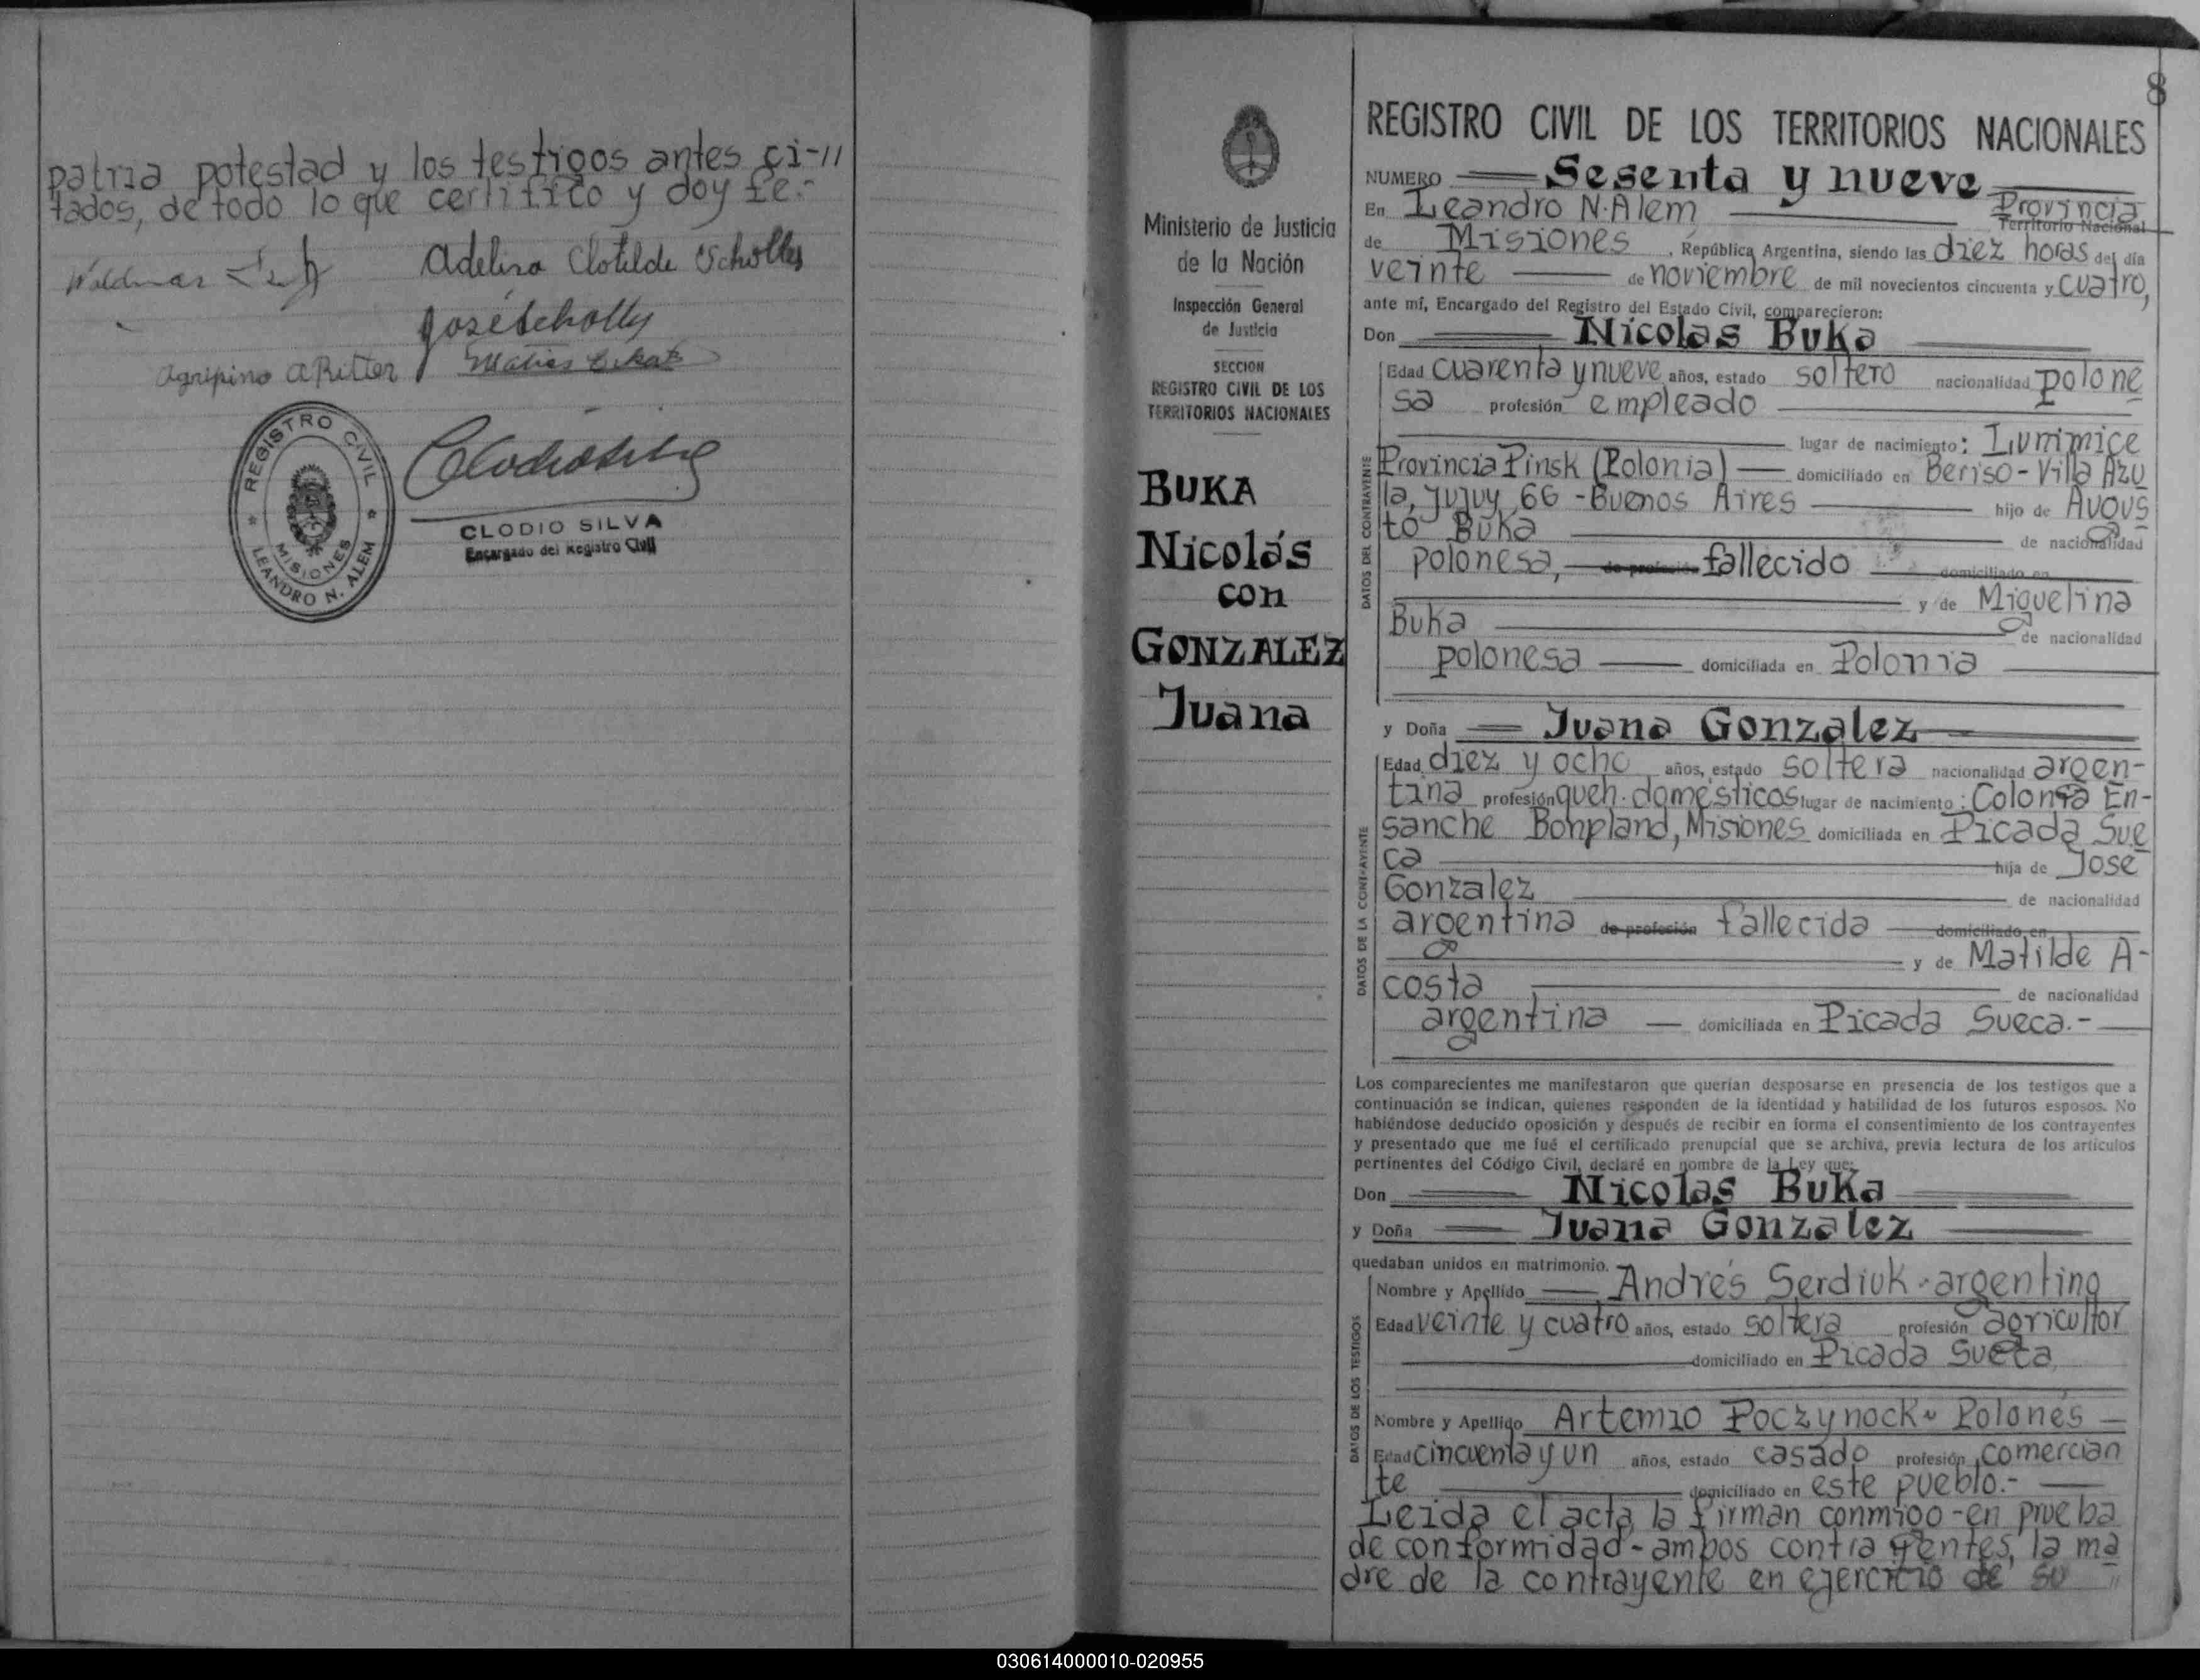 patria potestad y los testigos antes ci-//
tados, de todo lo que certifico y doy fe.-
Adelina Clotilde Scholles
José Scholly
Agripino A Ritter
REGISTRO CIVIL
MISIONES
LEANDRO N. ALEM
CLODIO SILVA
Encargado del Registro Civil
8
Ministerio de Justicia
de la Nación
Inspección General
de Justicia
SECCION
REGISTRO CIVIL DE LOS
TERRITORIOS NACIONALES
BUKA
Nicolás
con
GONZALEZ
Juana
REGISTRO CIVIL DE LOS TERRITORIOS NACIONALES
NUMERO Sesenta y nueve
En Leandro N. Alem Provincia
Territorio Nacional
de Misiones, República Argentina, siendo las diez horas del día
veinte de noviembre de mil novecientos cincuenta y cuatro,
ante mí, Encargado del Registro del Estado Civil, comparecieron:
Don Nicolas Buka
DATOS DEL CONTRAYENTE
Edad cuarenta y nueve años, estado soltero nacionalidad polone
sa profesión empleado
lugar de nacimiento:
Provincia Pinsk (Polonia) domiciliado en Beriso-Villa Azu
la, Jujuy 66 - Buenos Aires hijo de Augus
to Buka de nacionalidad
polonesa, de profesión fallecido domiciliado en
y de Miguelina
Buka de nacionalidad
polonesa domiciliada en Polonia
y Doña Juana Gonzalez
DATOS DE LA CONTRAYENTE
Edad diez y ocho años, estado soltera nacionalidad argen-
tina profesión queh. domésticos lugar de nacimiento: Colonia En-
sanche Bonpland, Misiones domiciliada en Picada Sue
ca hija de José
Gonzalez de nacionalidad
argentina de profesión fallecida domiciliado en
y de Matilde A-
costa de nacionalidad
argentina domiciliada en Picada Sueca.-
Los comparecientes me manifestaron que querían desposarse en presencia de los testigos que a
continuación se indican, quienes responden de la identidad y habilidad de los futuros esposos. No
habiéndose deducido oposición y después de recibir en forma el consentimiento de los contrayentes
y presentado que me fué el certificado prenupcial que se archiva, previa lectura de los artículos
pertinentes del Código Civil, declaré en nombre de la Ley que:
Don Nicolas Buka
y Doña Juana Gonzalez
quedaban unidos en matrimonio.
DATOS DE LOS TESTIGOS
Nombre y Apellido Andrés Serdiuk - argentino
Edad veinte y cuatro años, estado soltera profesión agricultor
domiciliado en Picada Sueca
Nombre y Apellido Artemio Poczynock - Polonés
Edad cincuenta y un años, estado casado profesión comercian
te domiciliado en este pueblo.-
Leida el acta, la firman conmigo - en prueba
de conformidad - ambos contrayentes, la ma
dre de la contrayente en ejercicio de su //
030614000010-020955